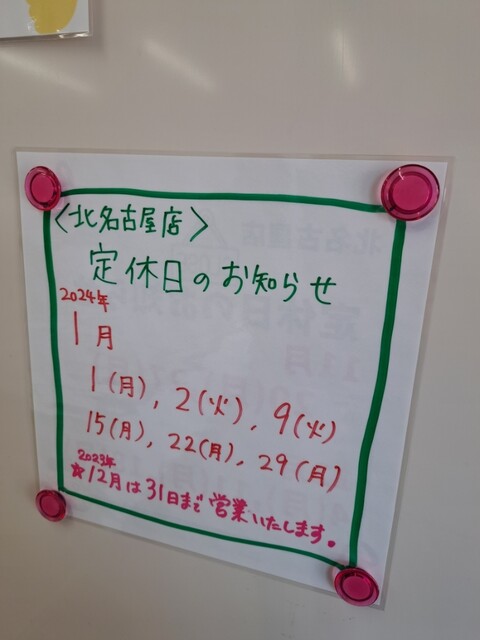 〈北名古屋店〉
定休日のお知らせ
2024年
1月
1(月), 2(火), 9(火)
15(月), 22(月), 29(月)
2023年
☆12月は31日まで営業いたします。